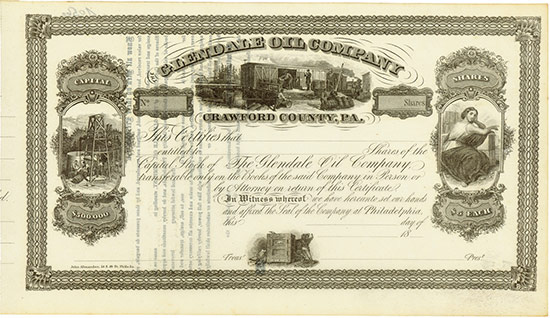 GLENDALE OIL COMPANY
CAPITAL
SHARES
No
Shares
CRAWFORD COUNTY, PA.
This Certifies that
entitled to Shares of the
Capital Stock of The Glendale Oil Company,
transferable only on the Books of the said Company in Person or
by Attorney on return of this Certificate.
In Witness whereof we have hereunto set our hands
and affixed the Seal of the Company at Philadelphia,
this day of
18
$500,000
$5 EACH
Treas.r
Pres.t